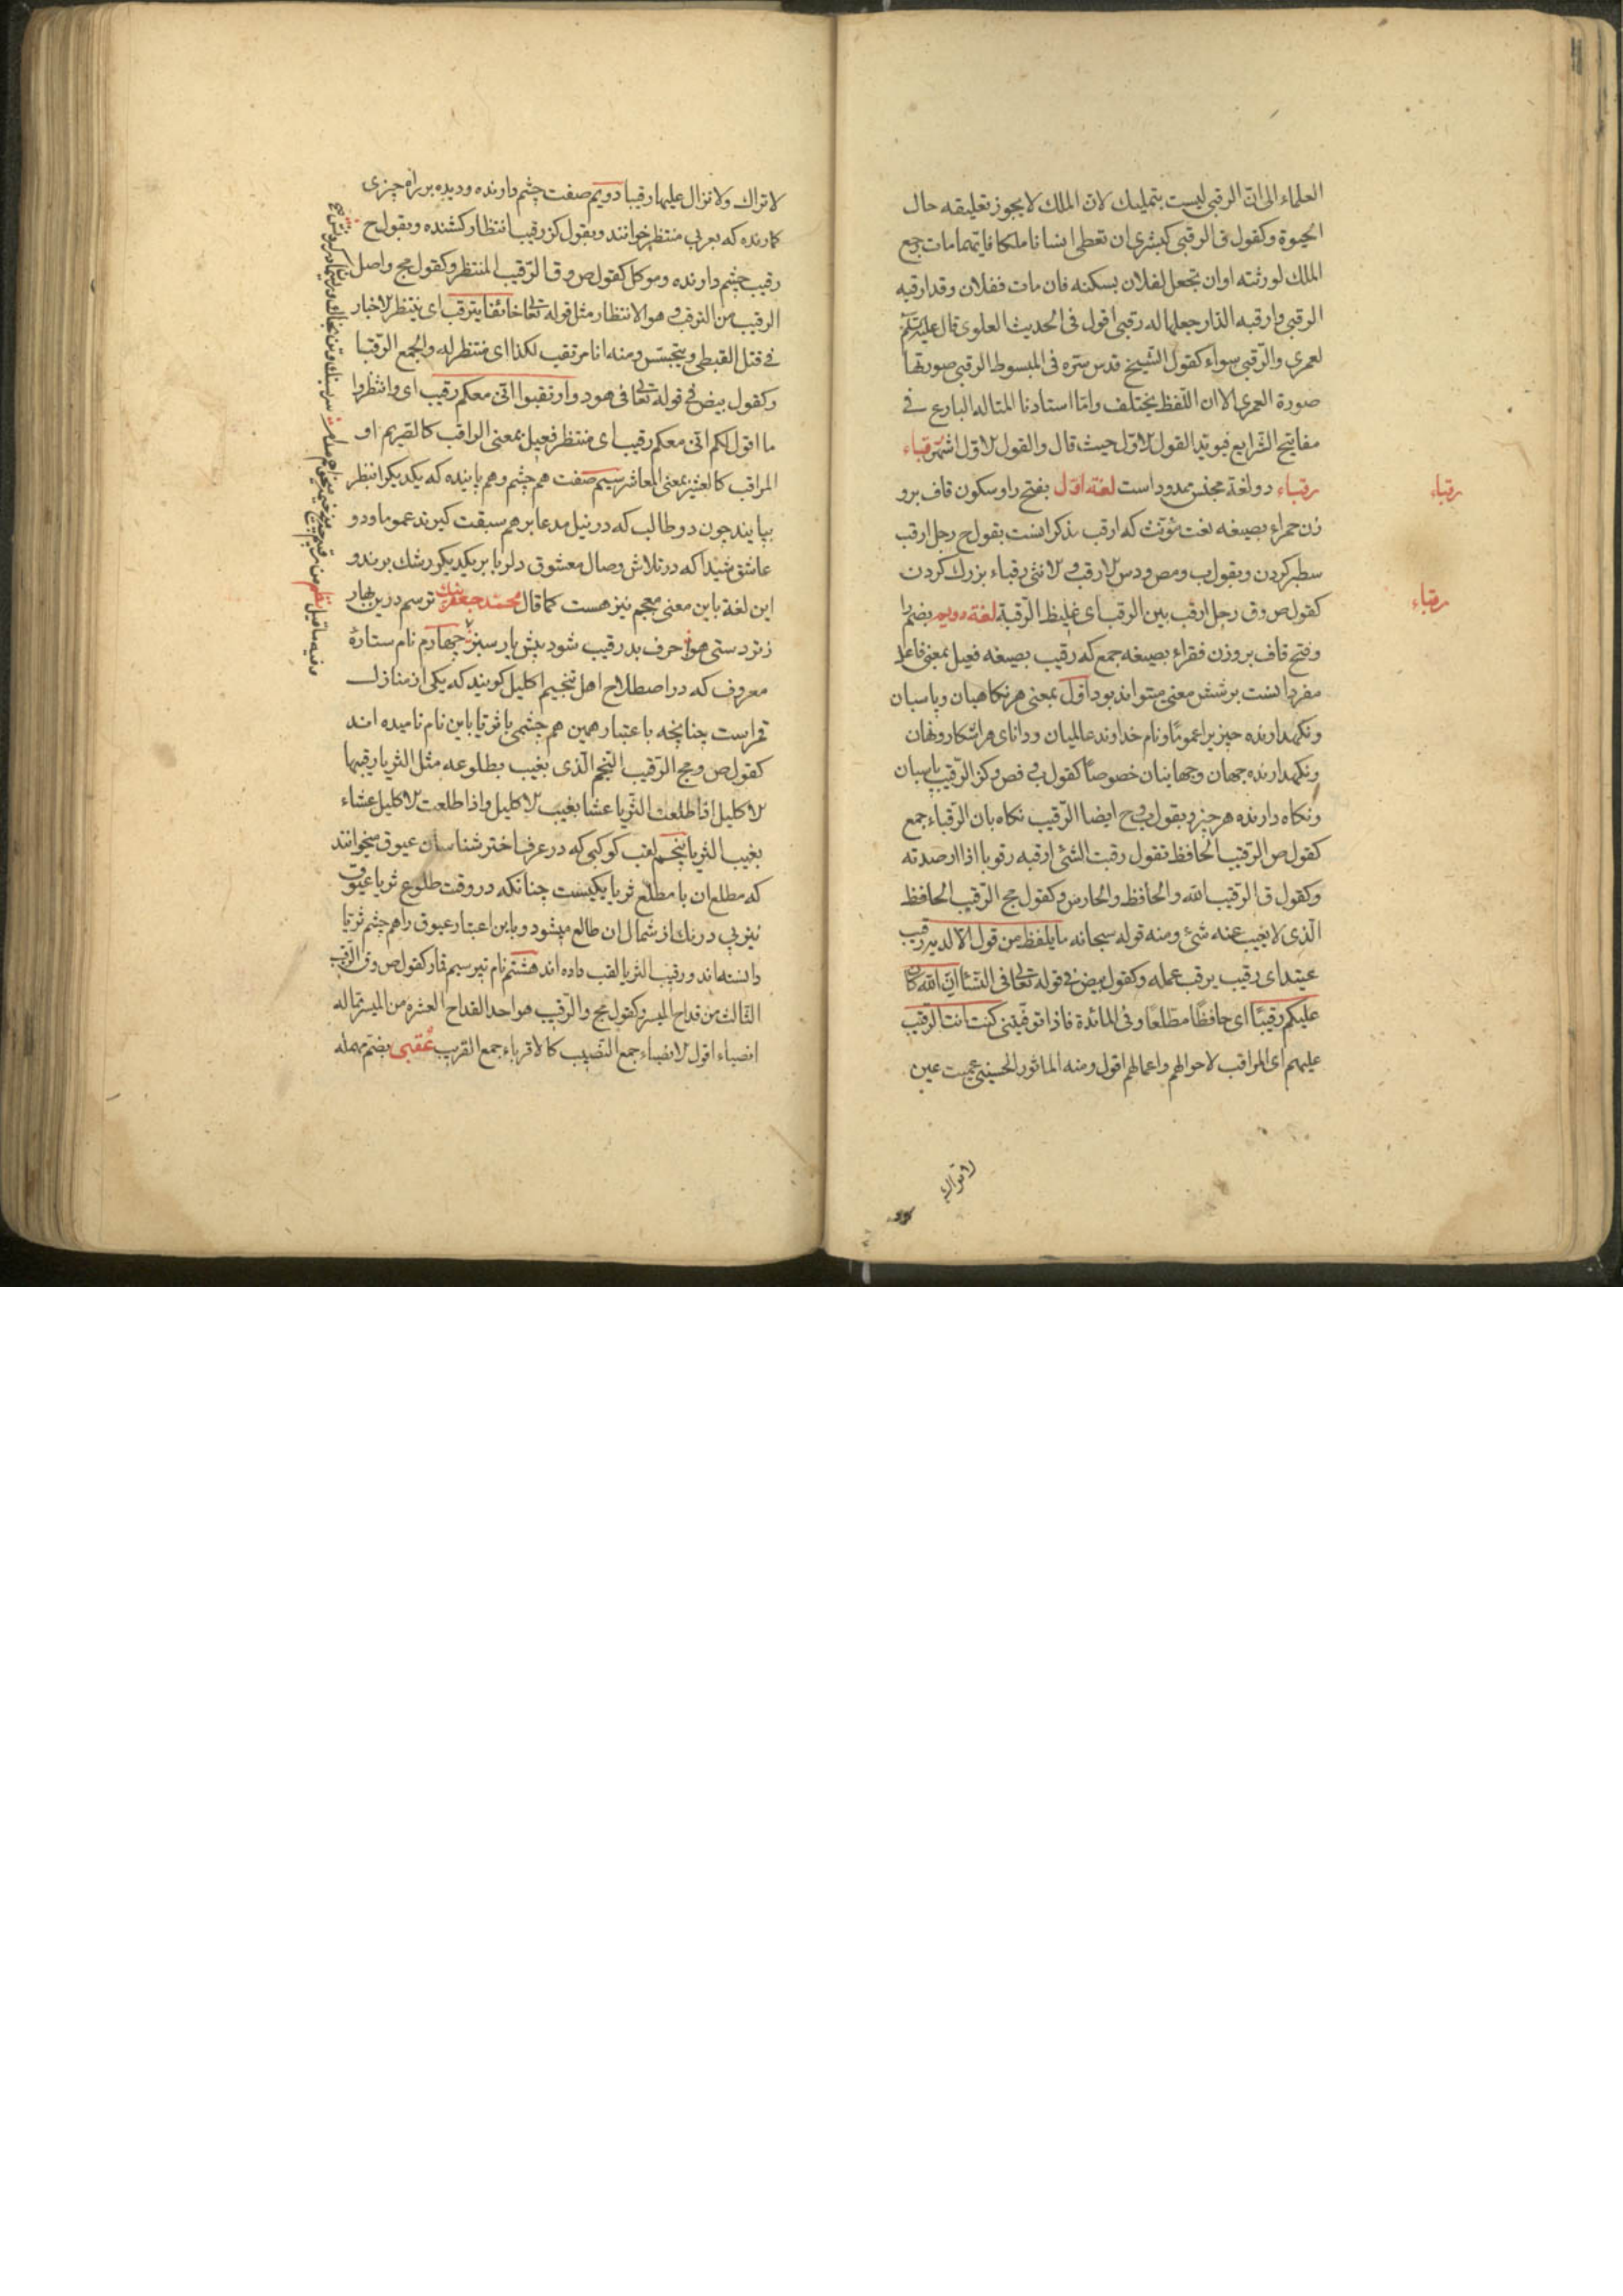 العلماء الى ان الرقبى ليست بتمليك لان الملك لا يجوز تعليقه حال
الحيوة وكقول ق الرقبى كبشرى ان تعطى انسانا ملكا فايهما مات رجع
الملك لورثته او ان تجعل لفلان يسكنه فان مات ففلان وقد ارقبه
الرقبى وارقبه الدار جعلها له رقبى اقول فى الحديث العلوى قال عليه السلم
لعمرى والرقبى سواء كقول الشيخ قدس سره فى المبسوط الرقبى صورتها
صورة العمرى الا ان اللفظ يختلف واما استادنا المتاله البارع فى
مفاتيح الشرايع فيؤيد القول الاول حيث قال والقول الاول اشهر رقباء
رقباء دو لغة مجنس ممدود است لغة اول بفتح را و سكون قاف برو
زن حمراء بصيغه نعت مؤنث كه ارقب مذكر انست بقول ح رجل ارقب
سطبر كردن وبقول ب ومص ودس الارقب والانثى رقباء بزرك كردن
كقول ص وق رجل ارقب بين الرقب اى غليظ الرقبة لغة دويم بضم را
وفتح قاف بروزن فقراء بصيغه جمع كه رقيب بصيغه فعيل بمعنى فاعل
مفرد انست بر شش معنى ميتواند بود اول بمعنى هر نكاهبان وپاسبان
ونكهدارنده چيز برا عموما ونام خداوند عالميان ودانای هر اشكار ونهان
ونكهدارنده جهان وجهانيان خصوصا كقول فى فص وكز الرقيب پاسبان
ونكاه دارنده هر چيز وبقول فى ح ايضا الرقيب نكاه بان الرقباء جمع
كقول ص الرقيب الحافظ تقول رقبت الشئ ارقبه رقوبا اذا رصدته
وكقول ق الرقيب الله والحافظ والحارس وكقول مج الرقيب الحافظ
الذى لا يغيب عنه شئ ومنه قوله سبحانه ما يلفظ من قول الا لديه رقيب
عتيد اى رقيب يرقب عمله وكقول بيض فى قوله تعالى فى النساء ان الله كان
عليكم رقيبا اى حافظا مطلعا وفى المائدة فاذا توفيتنى كنت انت الرقيب
عليهم اى المراقب لاحوالهم واعمالهم اقول ومنه الماثور الحسينى عميت عين
لا تراك
رقباء
رقباء
لا تراك ولا تزال عليها رقيبا دويم صفت چشم دارنده وديده بر راه چيزى
كمارنده كه بعربى منتظر خوانند وبقول كز رقيب انتظار كشنده وبقول ح
رقيب چشم دارنده وموكل كقول ص وق الرقيب المنتظر وكقول مج واصل
الرقيب من الترقب وهو الانتظار مثل قوله تعالى خائفا يترقب اى ينتظر الاخبار
فى قتل القبطى ويتجسس ومنه انا مرتقب لكذا اى منتظر له والجمع الرقبا
وكقول بيض فى قوله تعالى فى هود وارتقبوا انى معكم رقيب اى وانتظروا
ما اقول لكم انى معكم رقيب اى منتظر فعيل بمعنى الراقب كالصريم او
المراقب كالعشير بمعنى المعاشر سيم صفت هم چشم وهم پاينده كه يكديكر انتظر
بپايند چون دو طالب كه در نيل مدعا بر هم سبقت كيرند عموما ودو
عاشق شيدا كه در تلاش وصال معشوق دلربا بر يكديكر رشك برند و
اين لغة باين معنى معجم نيز هست كما قال محمد جعفر بيك ترسم درين بهار
ز تردستى هوا حرف بد رقيب شود پيش يار سبز چهارم نام ستارهٔ
معروف كه در اصطلاح اهل تنجيم اكليل كويند كه يكى از منازل
قمر است چنانچه باعتبار همين هم چشمى با ثريا باين نام ناميده اند
كقول ص ومج الرقيب النجم الذى يغيب بطلوعه مثل الثريا رقيبها
الاكليل اذا طلعت الثريا عشا يغيب الاكليل واذا طلعت الاكليل عشاء
يغيب الثريا پنجم لقب كوكبى كه در عرف اختر شناسان عيوق ميخوانند
كه مطلع ان با مطلع ثريا يكيست چنانكه در وقت طلوع ثريا عيوق
نيز بى درنك از شمال ان طالع ميشود وباين اعتبار عيوق را هم چشم ثريا
دانسته اند ورقيب الثريا لقب داده اند هشتم نام تير سيم قمار كقول ص وق الرقيب
الثالث من قداح الميسر وكقول مج والرقيب هو احد القداح العشرة من الميسر مما له
انصباء اقول الانصباء جمع النصيب كالاقرباء جمع القريب عقبى بضم مهمله